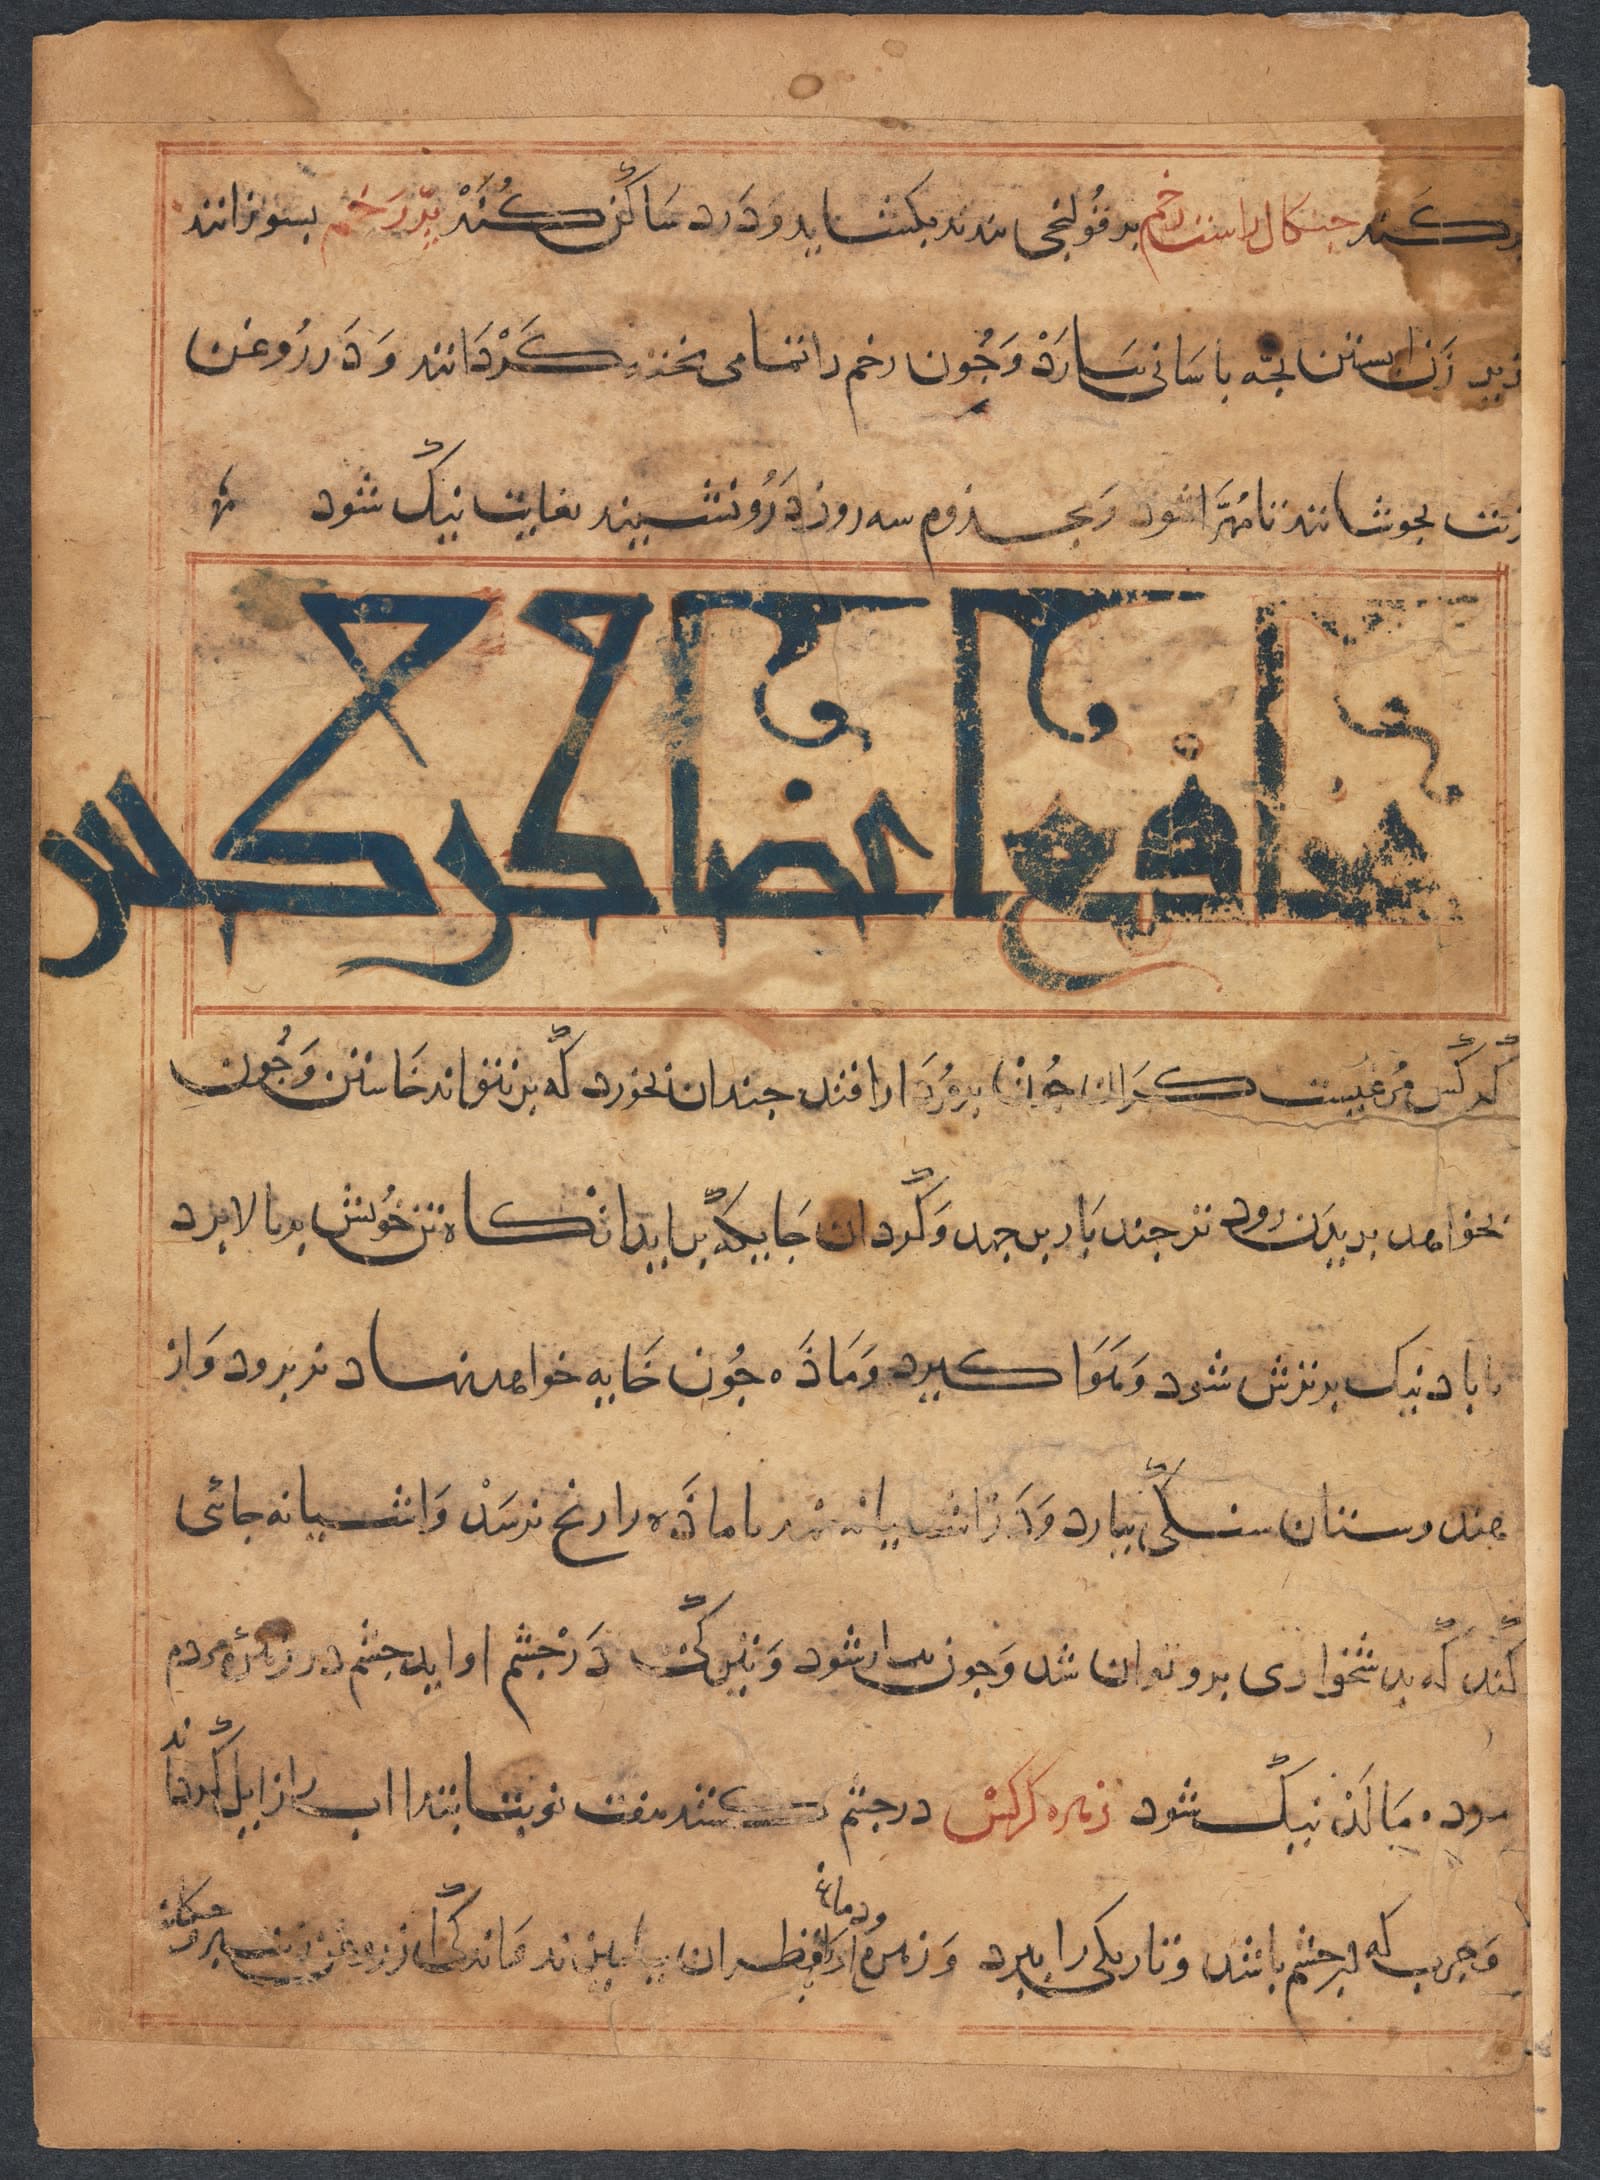 کند چنکال راست رخم بر قولنجی بندند بکشاید و دَرد سَاکن کُنَدْ پرّ رَخم بسوزانند
زیر زَن ابستن بچّه باسَانی بیَارَدْ وَ جُون رخم را بتمامی پخته کَرْدَانند وَ دَر رُوغن
زیت بجوشانند تا مُهرّا شود وَ مجذوم سه روز دَرُو نشیند بغایت نیک شود
منافع اعضا کرکس
کرکَس مُرغیست کَران جُون بمُردَار افتد جندان بخورد که برنتواند خَاستن وَ جُون
بخواهد بریدن رود تیز جند بَار بر جهد وَ کردان جَاییکه براید انکاه تن خُویش بر بالا برد
تا باد نیک بر تزش شود وَ هَوَا کیرد وَ مَاذَه جُون خَایه خواهد نهاد نر برود وَ از
هندوستان سنکی بیارد وَ دَر اشیانه نهد تا ماذَه را رنج نرسَدْ وَ اشیانه جائی
کند که بدشخواری برو توان شد وَ جون بیمار شود وَ تیرکی دَرْ جشم او اید جشم در زهرۀ مردم
مرده مَالَدْ نیک شود زهره کرکسْ در جشم کشند هفت نوبت ابتدا اب را زایل کرداند
وَ جرب که در جشم باشد و تاریکی را ببرد وَ زهره او را و دماغ بقطران